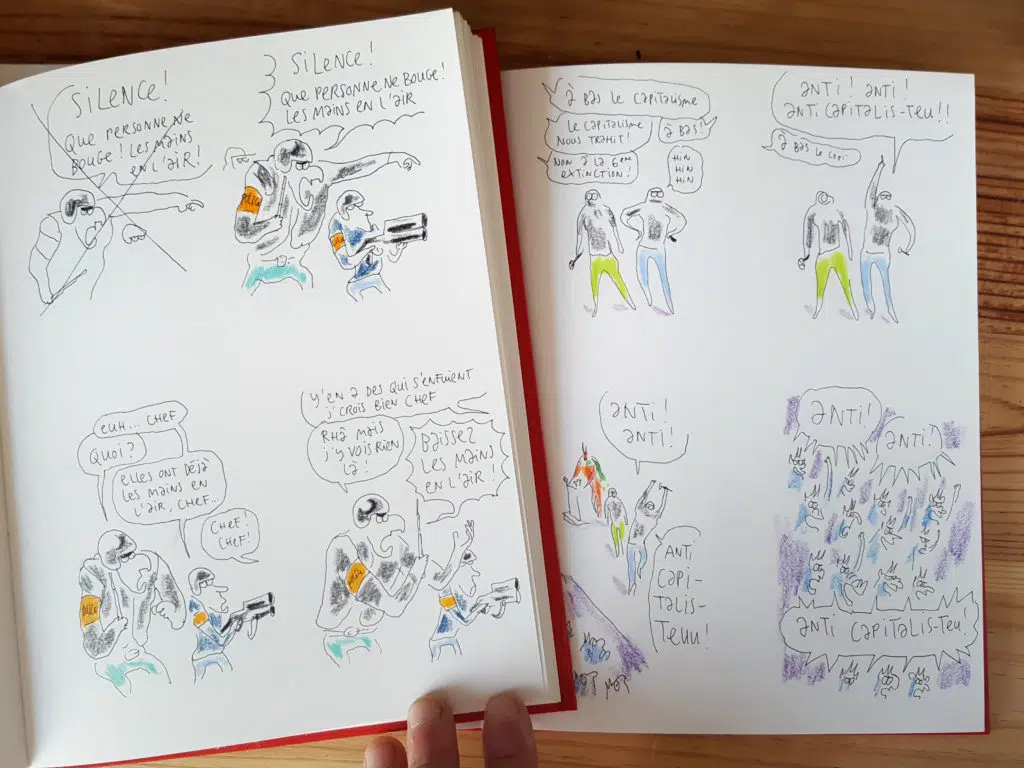 SILENCE!
QUE PERSONNE NE
BOUGE! LES MAINS
EN L'AIR!
SILENCE!
QUE PERSONNE NE BOUGE!
LES MAINS EN L'AIR
POLICE
EUH... CHEF
QUOI?
ELLES ONT DÉJÀ
LES MAINS EN
L'AIR, CHEF...
CHEF!
CHEF!
POLICE
Y'EN A DES QUI S'ENFUIENT
J'CROIS BIEN CHEF
RHÂ MAIS
J'Y VOIS RIEN
LÀ!
BAISSEZ
LES MAINS
EN L'AIR!
POLICE
À BAS LE CAPITALISME
LE CAPITALISME
NOUS TRAHIT!
À BAS!
NON À LA 6ÈME
EXTINCTION!
HIN
HIN
HIN
ANTI! ANTI!
ANTI CAPITALIS-TEU!!
À BAS LE CAPI
ANTI!
ANTI!
ANTI
CAPI-
TALIS-
TEUU!
ANTI!
ANTI!
ANTI CAPITALIS-TEU!